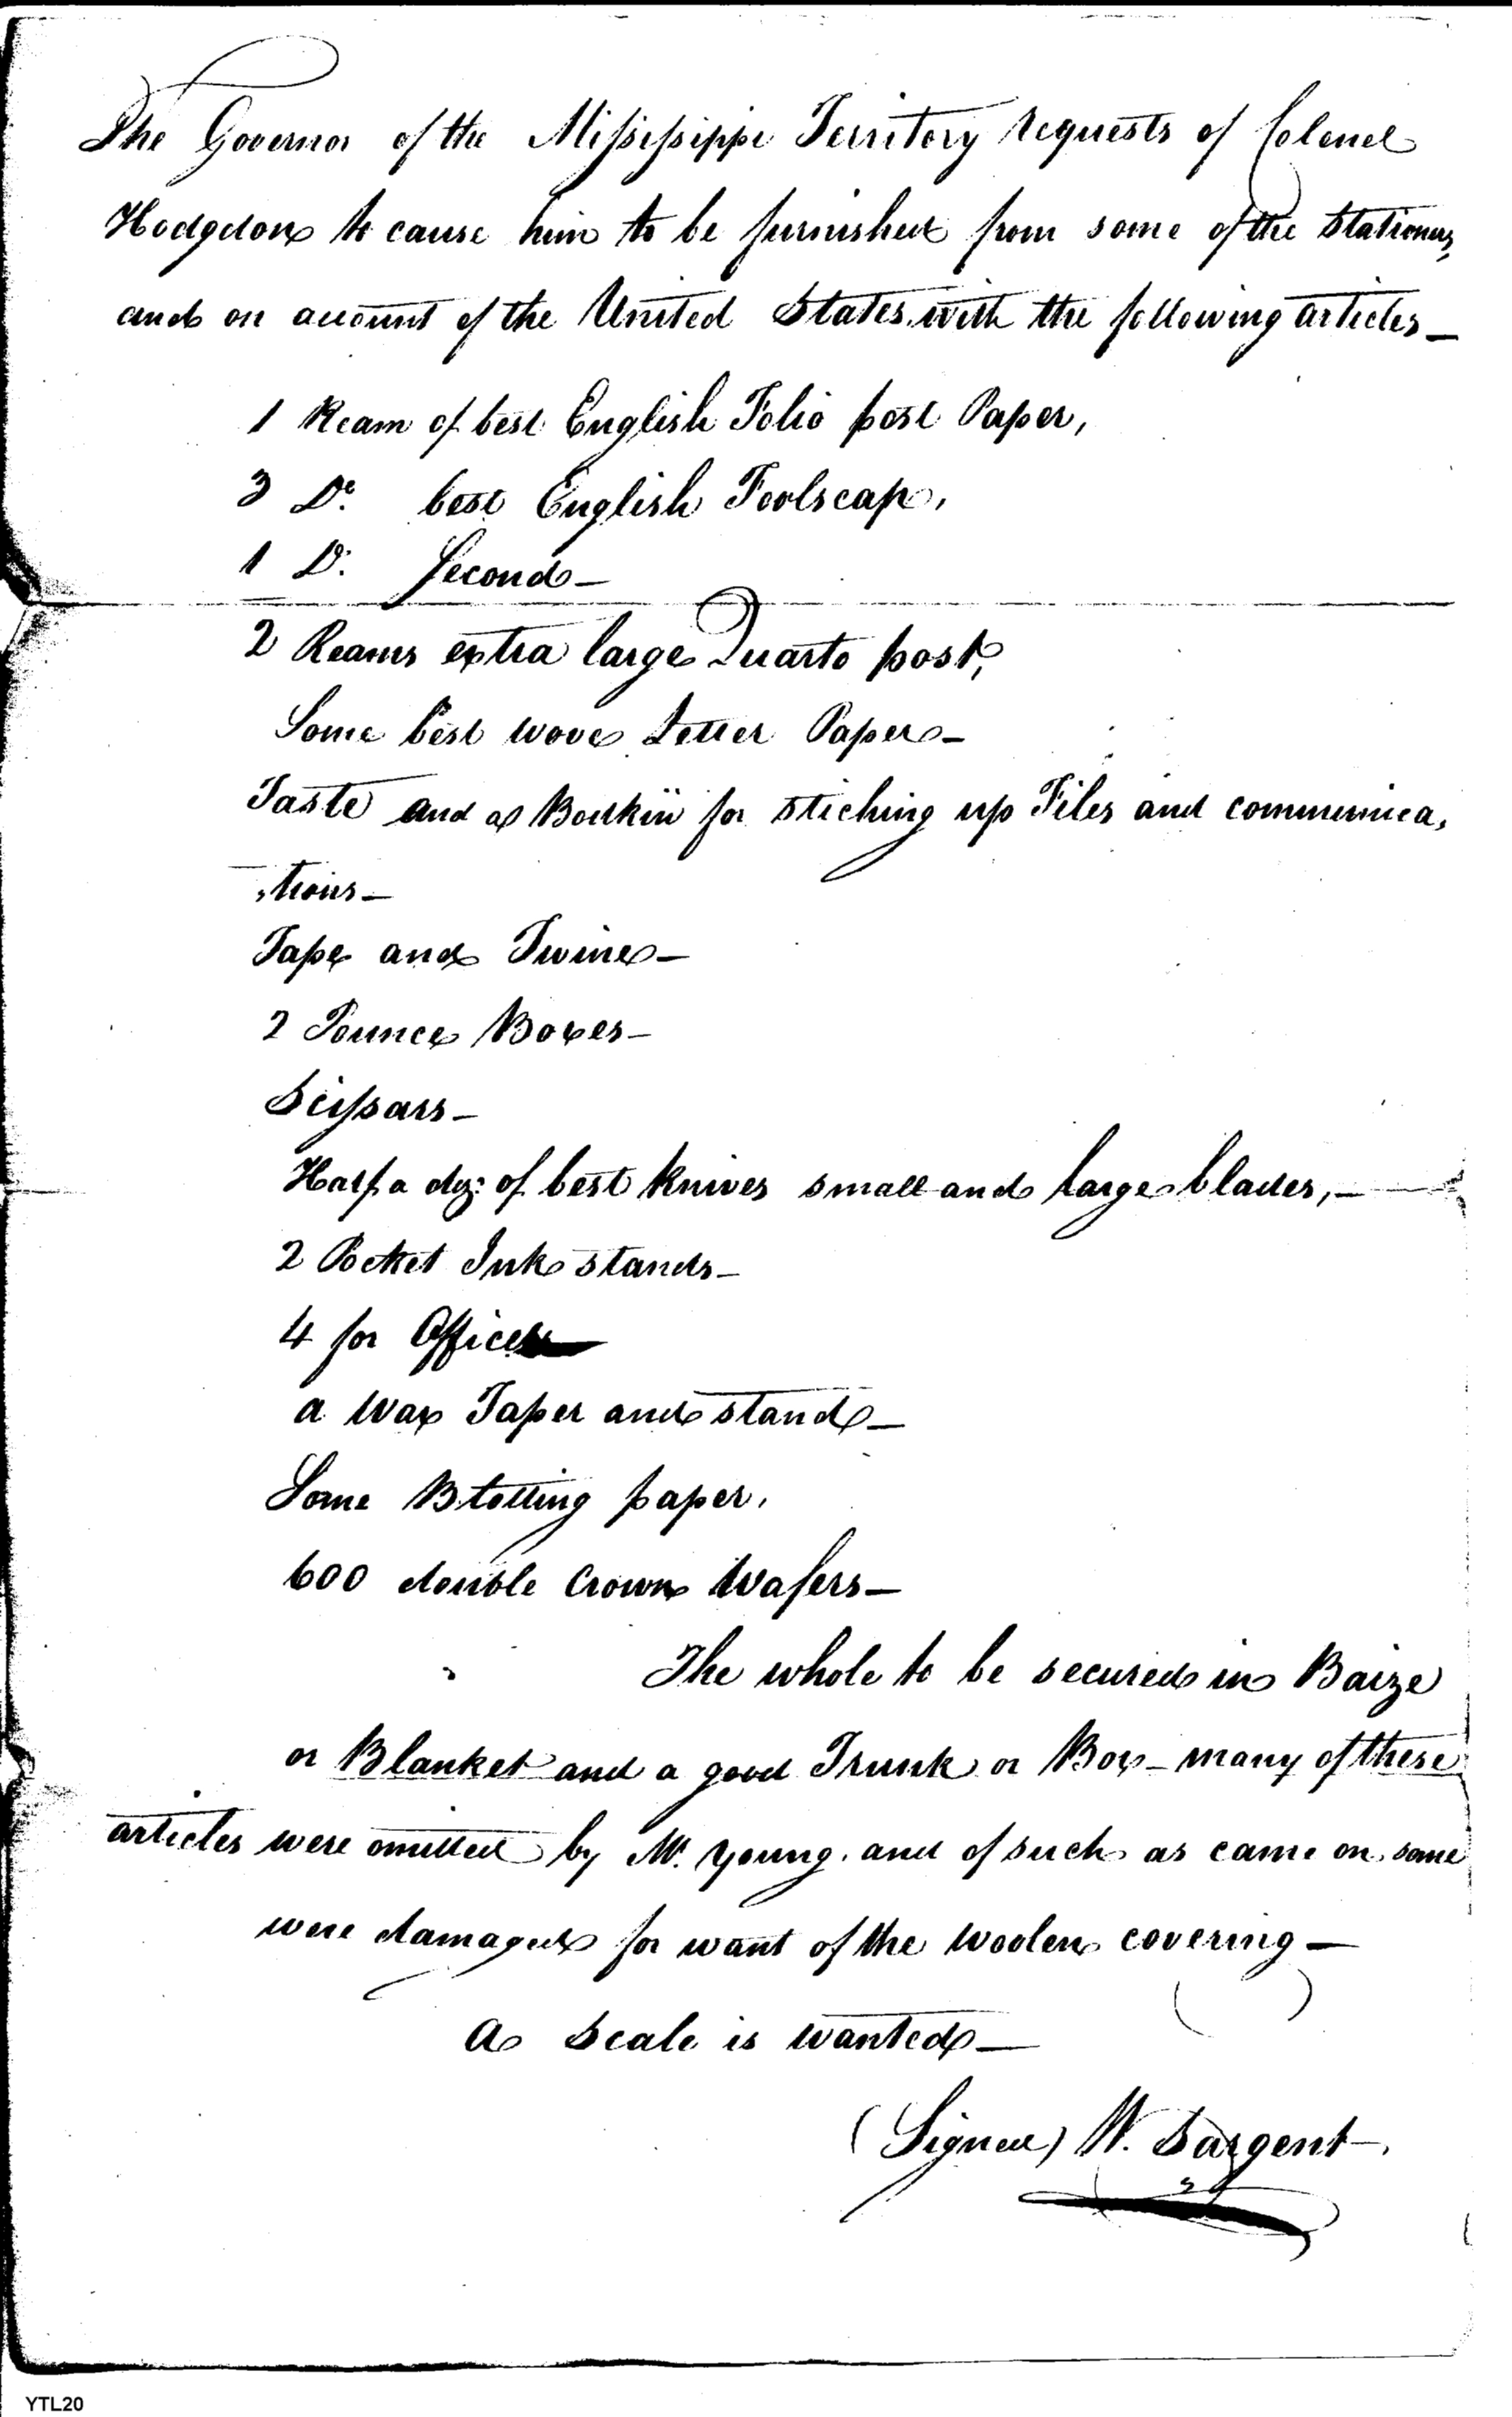 The Governor of the Missisippi Territory requests of Colonel
Hodgdon to cause him to be furnished from some of the Stationers,
and on account of the United States, with the following articles—
1 Ream of best English Folio post Paper,
3 Do. best English Foolscap,
1 Do. Second—
2 Reams extra large Quarto post,
Some best wove Letter Paper—
Taste and a Bodkin for stiching up Files and communica,
,tions—
Tape and Twine—
2 Pounce Boxes—
Scissars—
Half a doz: of best knives small and large blades,—
2 Pocket Ink stands—
4 for Office
a Wax Taper and stand—
Some Blotting paper,
600 double Crown Wafers—
The whole to be secured in Baize
or Blanket and a good Trunk or Box—many of these
articles were omitted by Mr. Young. and of such as came on some
were damaged for want of the woolen covering—
A Scale is wanted—
(Signed) W. Sargent
YTL20